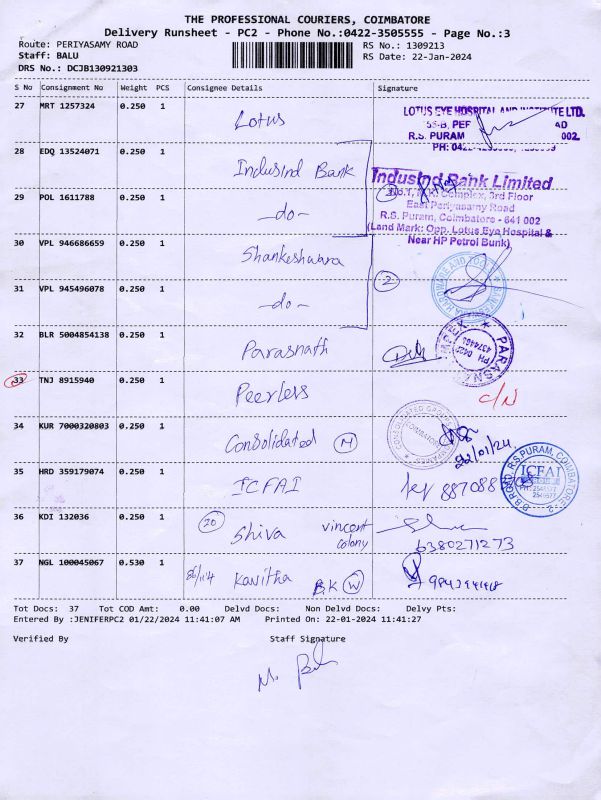 THE PROFESSIONAL COURIERS, COIMBATORE
Delivery Runsheet - PC2 - Phone No.:0422-3505555 - Page No.:3
Route: PERIYASAMY ROAD RS No.: 1309213
Staff: BALU RS Date: 22-Jan-2024
DRS No.: DCJB130921303
S No Consignment No Weight PCS Consignee Details Signature
27 MRT 1257324 0.250 1 Lotus
LOTUS EYE HOSPITAL AND INSTITUTE LTD.
R.S. PURAM 002.
28 EDQ 13524071 0.250 1 IndusInd Bank
IndusInd Bank Limited
Complex, 3rd Floor
East Periyasamy Road
R.S. Puram, Coimbatore - 641 002
(Land Mark: Opp. Lotus Eye Hospital &
Near HP Petrol Bunk)
29 POL 1611788 0.250 1 -do-
30 VPL 946686659 0.250 1 Shankeshwara
31 VPL 945496078 0.250 1 -do- 2
32 BLR 5004854138 0.250 1 Parasnath
33 TNJ 8915940 0.250 1 Peerless C/N
34 KUR 7000320803 0.250 1 Consolidated M
22/01/24
35 HRD 359179074 0.250 1 ICFAI
ICFAI
D.B. ROAD, R.S. PURAM, COIMBATORE-2
36 KDI 132036 0.250 1 20 Shiva vincent colony
6380271273
37 NGL 100045067 0.530 1 Kavitha B.K W
Tot Docs: 37 Tot COD Amt: 0.00 Delvd Docs: Non Delvd Docs: Delvy Pts:
Entered By :JENIFERPC2 01/22/2024 11:41:07 AM Printed On: 22-01-2024 11:41:27
Verified By Staff Signature